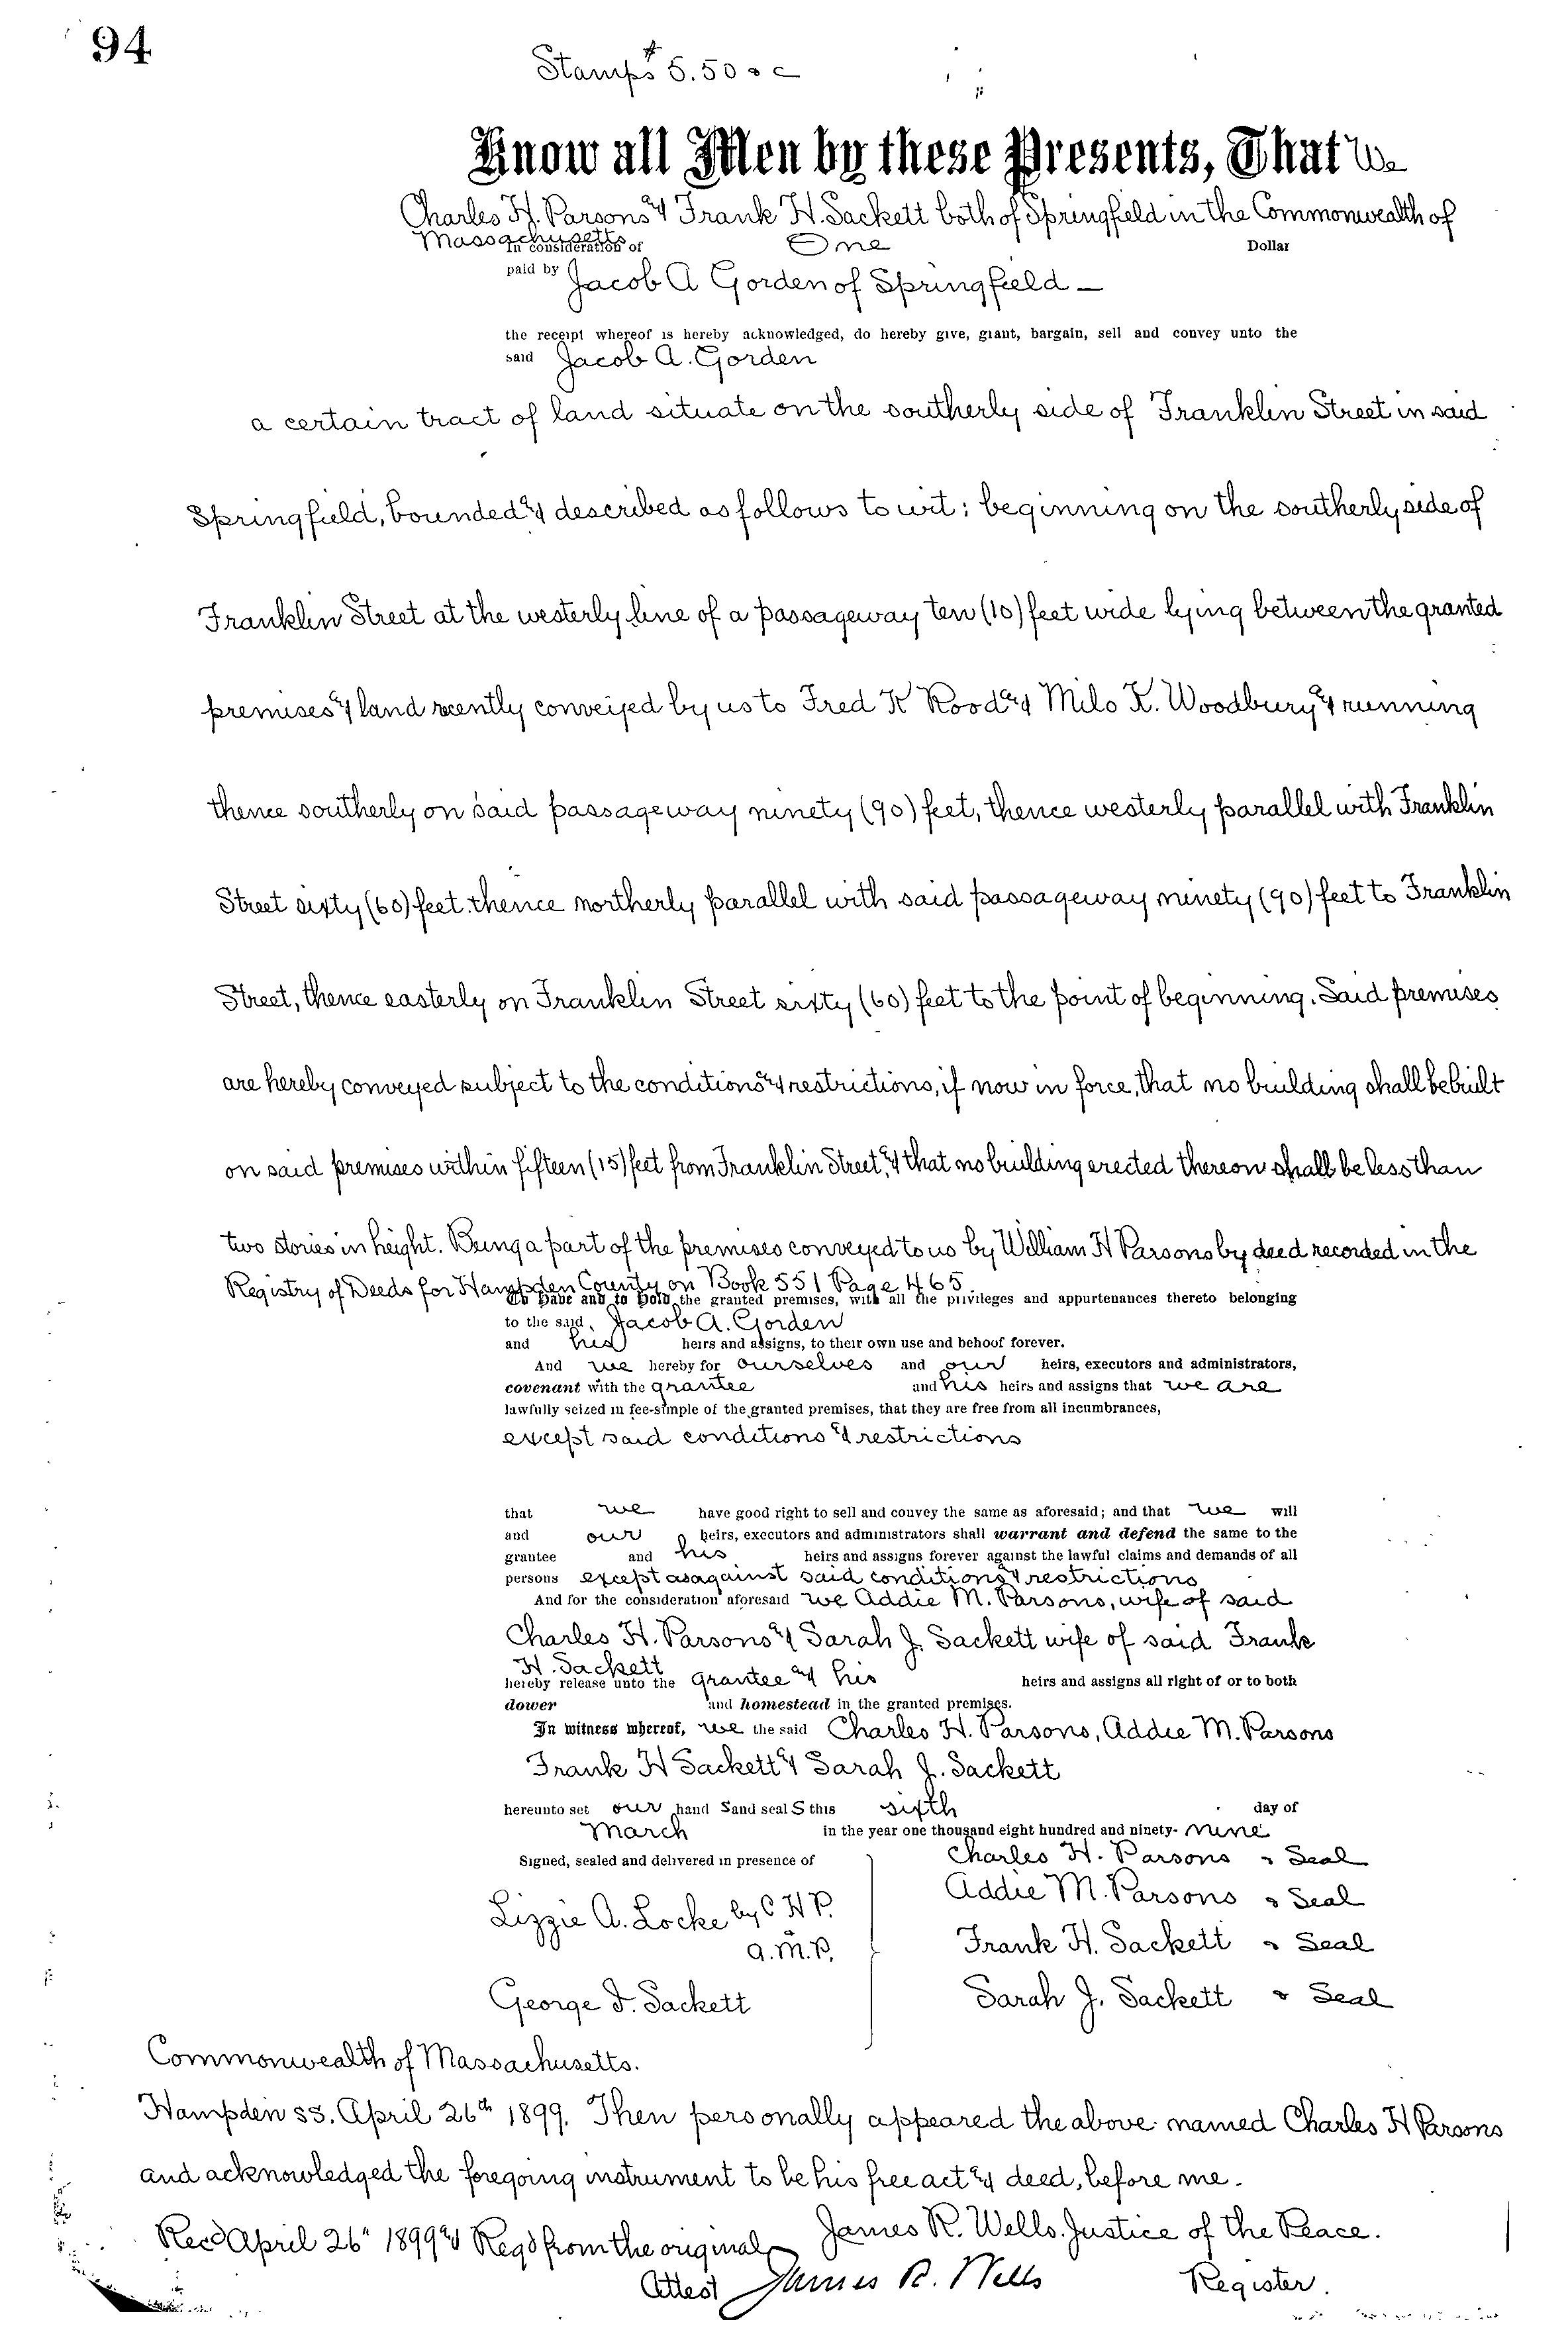 94
Stamps $5.50 o c
Know all Men by these Presents, That We
Charles H. Parsons & Frank H. Sackett both of Springfield in the Commonwealth of
Massachusetts
In consideration of One Dollar
paid by Jacob A Gorden of Springfield —
the receipt whereof is hereby acknowledged, do hereby give, grant, bargain, sell and convey unto the
said Jacob A. Gorden
a certain tract of land situate on the southerly side of Franklin Street in said
Springfield, bounded & described as follows to wit: beginning on the southerly side of
Franklin Street at the westerly line of a passageway ten (10) feet wide lying between the granted
premises & land recently conveyed by us to Fred K Rood & Milo K. Woodbury & running
thence southerly on said passageway ninety (90) feet, thence westerly parallel with Franklin
Street sixty (60) feet. thence northerly parallel with said passageway ninety (90) feet to Franklin
Street, thence easterly on Franklin Street sixty (60) feet to the point of beginning. Said premises
are hereby conveyed subject to the conditions & restrictions, if now in force, that no building shall be built
on said premises within fifteen (15) feet from Franklin Street, & that no building erected thereon shall be less than
two stories in height. Being a part of the premises conveyed to us by William H Parsons by deed recorded in the
Registry of Deeds for Hampden County on Book 551 Page 465.
To Have and to Hold the granted premises, with all the privileges and appurtenances thereto belonging
to the said, Jacob A. Gorden
and his heirs and assigns, to their own use and behoof forever.
And we hereby for ourselves and our heirs, executors and administrators,
covenant with the grantee and his heirs and assigns that we are
lawfully seized in fee-simple of the granted premises, that they are free from all incumbrances,
except said conditions & restrictions
that we have good right to sell and convey the same as aforesaid; and that we will
and our heirs, executors and administrators shall warrant and defend the same to the
grantee and his heirs and assigns forever against the lawful claims and demands of all
persons except as against said conditions & restrictions
And for the consideration aforesaid we Addie M. Parsons, wife of said
Charles H. Parsons & Sarah J. Sackett wife of said Frank
H. Sackett
hereby release unto the grantee & his heirs and assigns all right of or to both
dower and homestead in the granted premises.
In witness whereof, we the said Charles H. Parsons, Addie M. Parsons
Frank H Sackett & Sarah J. Sackett
hereunto set our hand S and seal S this sixth day of
March in the year one thousand eight hundred and ninety- nine
Signed, sealed and delivered in presence of
Charles H. Parsons & Seal
Addie M. Parsons & Seal
Lizzie A. Locke by C H P.
a. M. P.
Frank H. Sackett & Seal
George F. Sackett
Sarah J. Sackett & Seal
Commonwealth of Massachusetts.
Hampden ss. April 26th 1899. Then personally appeared the above named Charles H Parsons
and acknowledged the foregoing instrument to be his free act & deed, before me.
James R. Wells. Justice of the Peace.
Recd April 26" 1899 & Regd from the original
Attest James R. Wells Register.